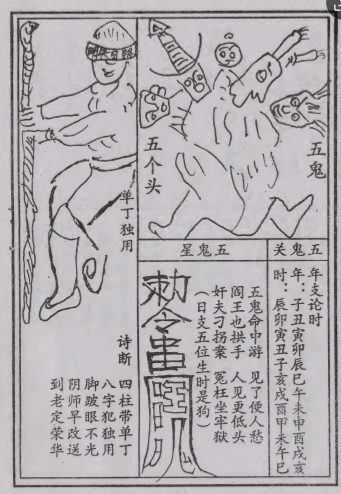 五鬼
五个头
五鬼关
年支论时
年：子丑寅卯辰巳午未申酉戌亥
时：辰卯寅丑子亥戌酉申未午巳
五鬼星
五鬼命中游 见了使人愁
阎王也拱手 人见更低头
奸夫刁拐案 冤枉坐牢狱
（日支五位生时是狗）
勅令
单丁独用
诗断
四柱带单丁
八字犯独用
脚跛眼不光
阴师早改送
到老定荣华